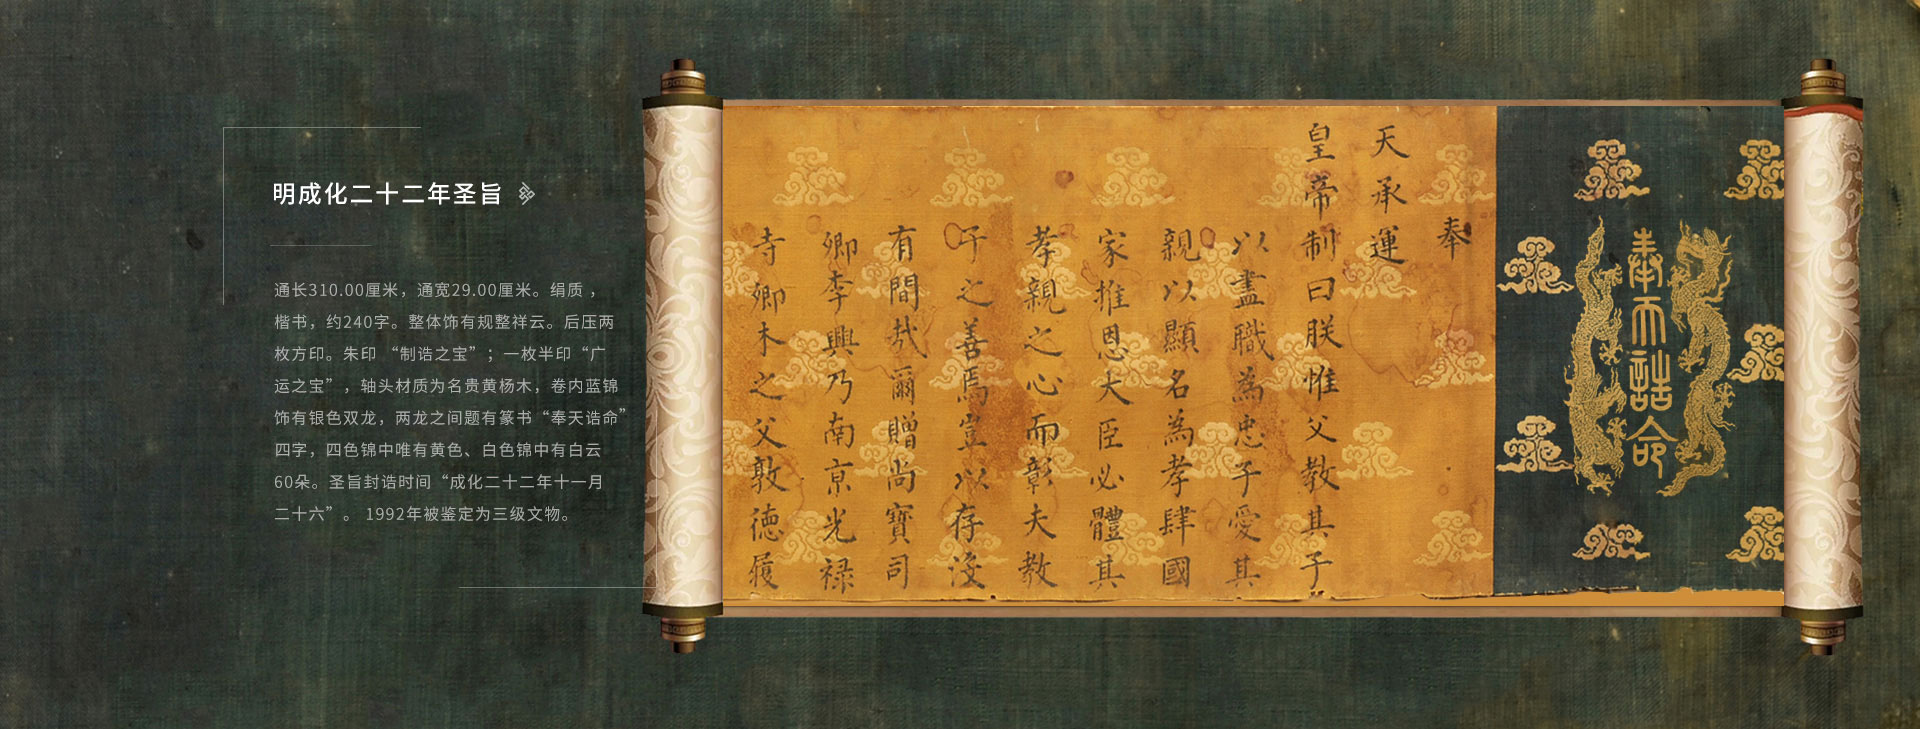 明成化二十二年圣旨
通长310.00厘米，通宽29.00厘米。绢质，
楷书，约240字。整体饰有规整祥云。后压两
枚方印。朱印 “制诰之宝”；一枚半印“广
运之宝”，轴头材质为名贵黄杨木，卷内蓝锦
饰有银色双龙，两龙之间题有篆书“奉天诰命”
四字，四色锦中唯有黄色、白色锦中有白云
60朵。圣旨封诰时间“成化二十二年十一月
二十六”。 1992年被鉴定为三级文物。
奉天誥命
奉
天承運
皇帝制曰朕惟父教其子
以盡職為忠子愛其
親以顯名為孝肆國
家推恩大臣必體其
孝親之心而彰夫教
子之善焉豈以存沒
有間哉爾贈尚寶司
卿李興乃南京光禄
寺卿木之父敦德履